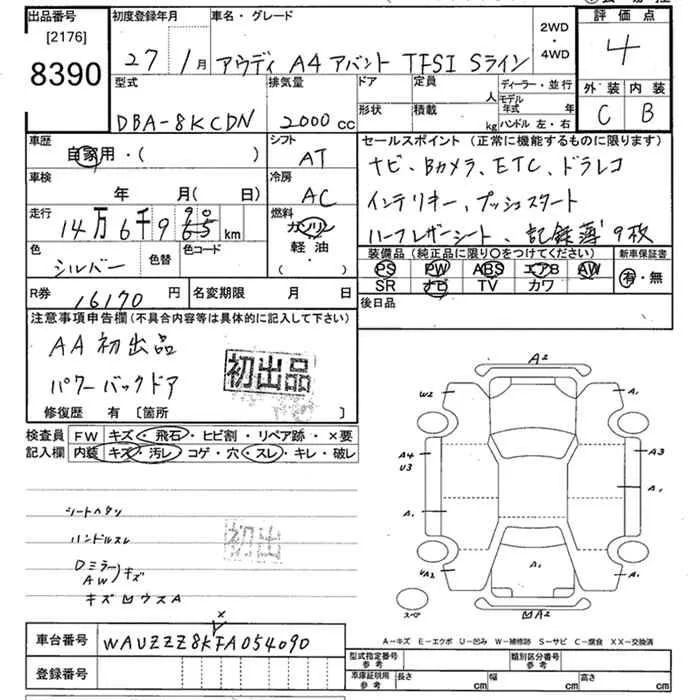 出品番号
[2176]
8390
初度登録年月
27年1月
車名・グレード
アウディ A4 アバント TFSI Sライン
2WD
・
4WD
評価点
4
外装 内装
C B
型式
DBA-8KCDN
排気量
2000cc
ドア
形状
定員 人
積載 kg
ディーラー・並行
モデル年式 年
ハンドル 左・右
車歴
自家用・( )
シフト
AT
車検
年 月( 日)
冷房
AC
走行
14万6千9 90 65 km
燃料
ガソリン
軽油
( ・ )
色
シルバー
色替
色コード
セールスポイント(正常に機能するものに限ります)
ナビ、Bカメラ、ETC、ドラレコ
インテリキー、プッシュスタート
ハーフレザーシート、記録簿9枚
装備品(純正品に限り○をつけてください)
PS PW ABS エアB AW
SR ナビ TV カワ
新車保証書
有・無
後日品
R券 16170円
名変期限 月 日
注意事項申告欄(不具合内容等は具体的に記入して下さい)
AA初出品
パワーバックドア
初出品
修復歴 有 [箇所 ]
検査員
記入欄
FW キズ・飛石・ヒビ割・リペア跡・×要
内装 キズ・汚レ・コゲ・穴・スレ・キレ・破レ
シートヘタリ
ハンドルスレ
Dミラー
AW
キズ
初出
A2
W2
A1
A4
U3
A3
A1
A1
A1
UA2
A1
スペア
A2
A-キズ E-エクボ U-凹み W-補修跡 S-サビ C-腐食 XX-交換済
車台番号
x
WAUZZZ8KFA054090
登録番号
型式指定番号
参考
類別区分番号
参考
車庫証明用
参考
長さ cm
幅 cm
高さ cm